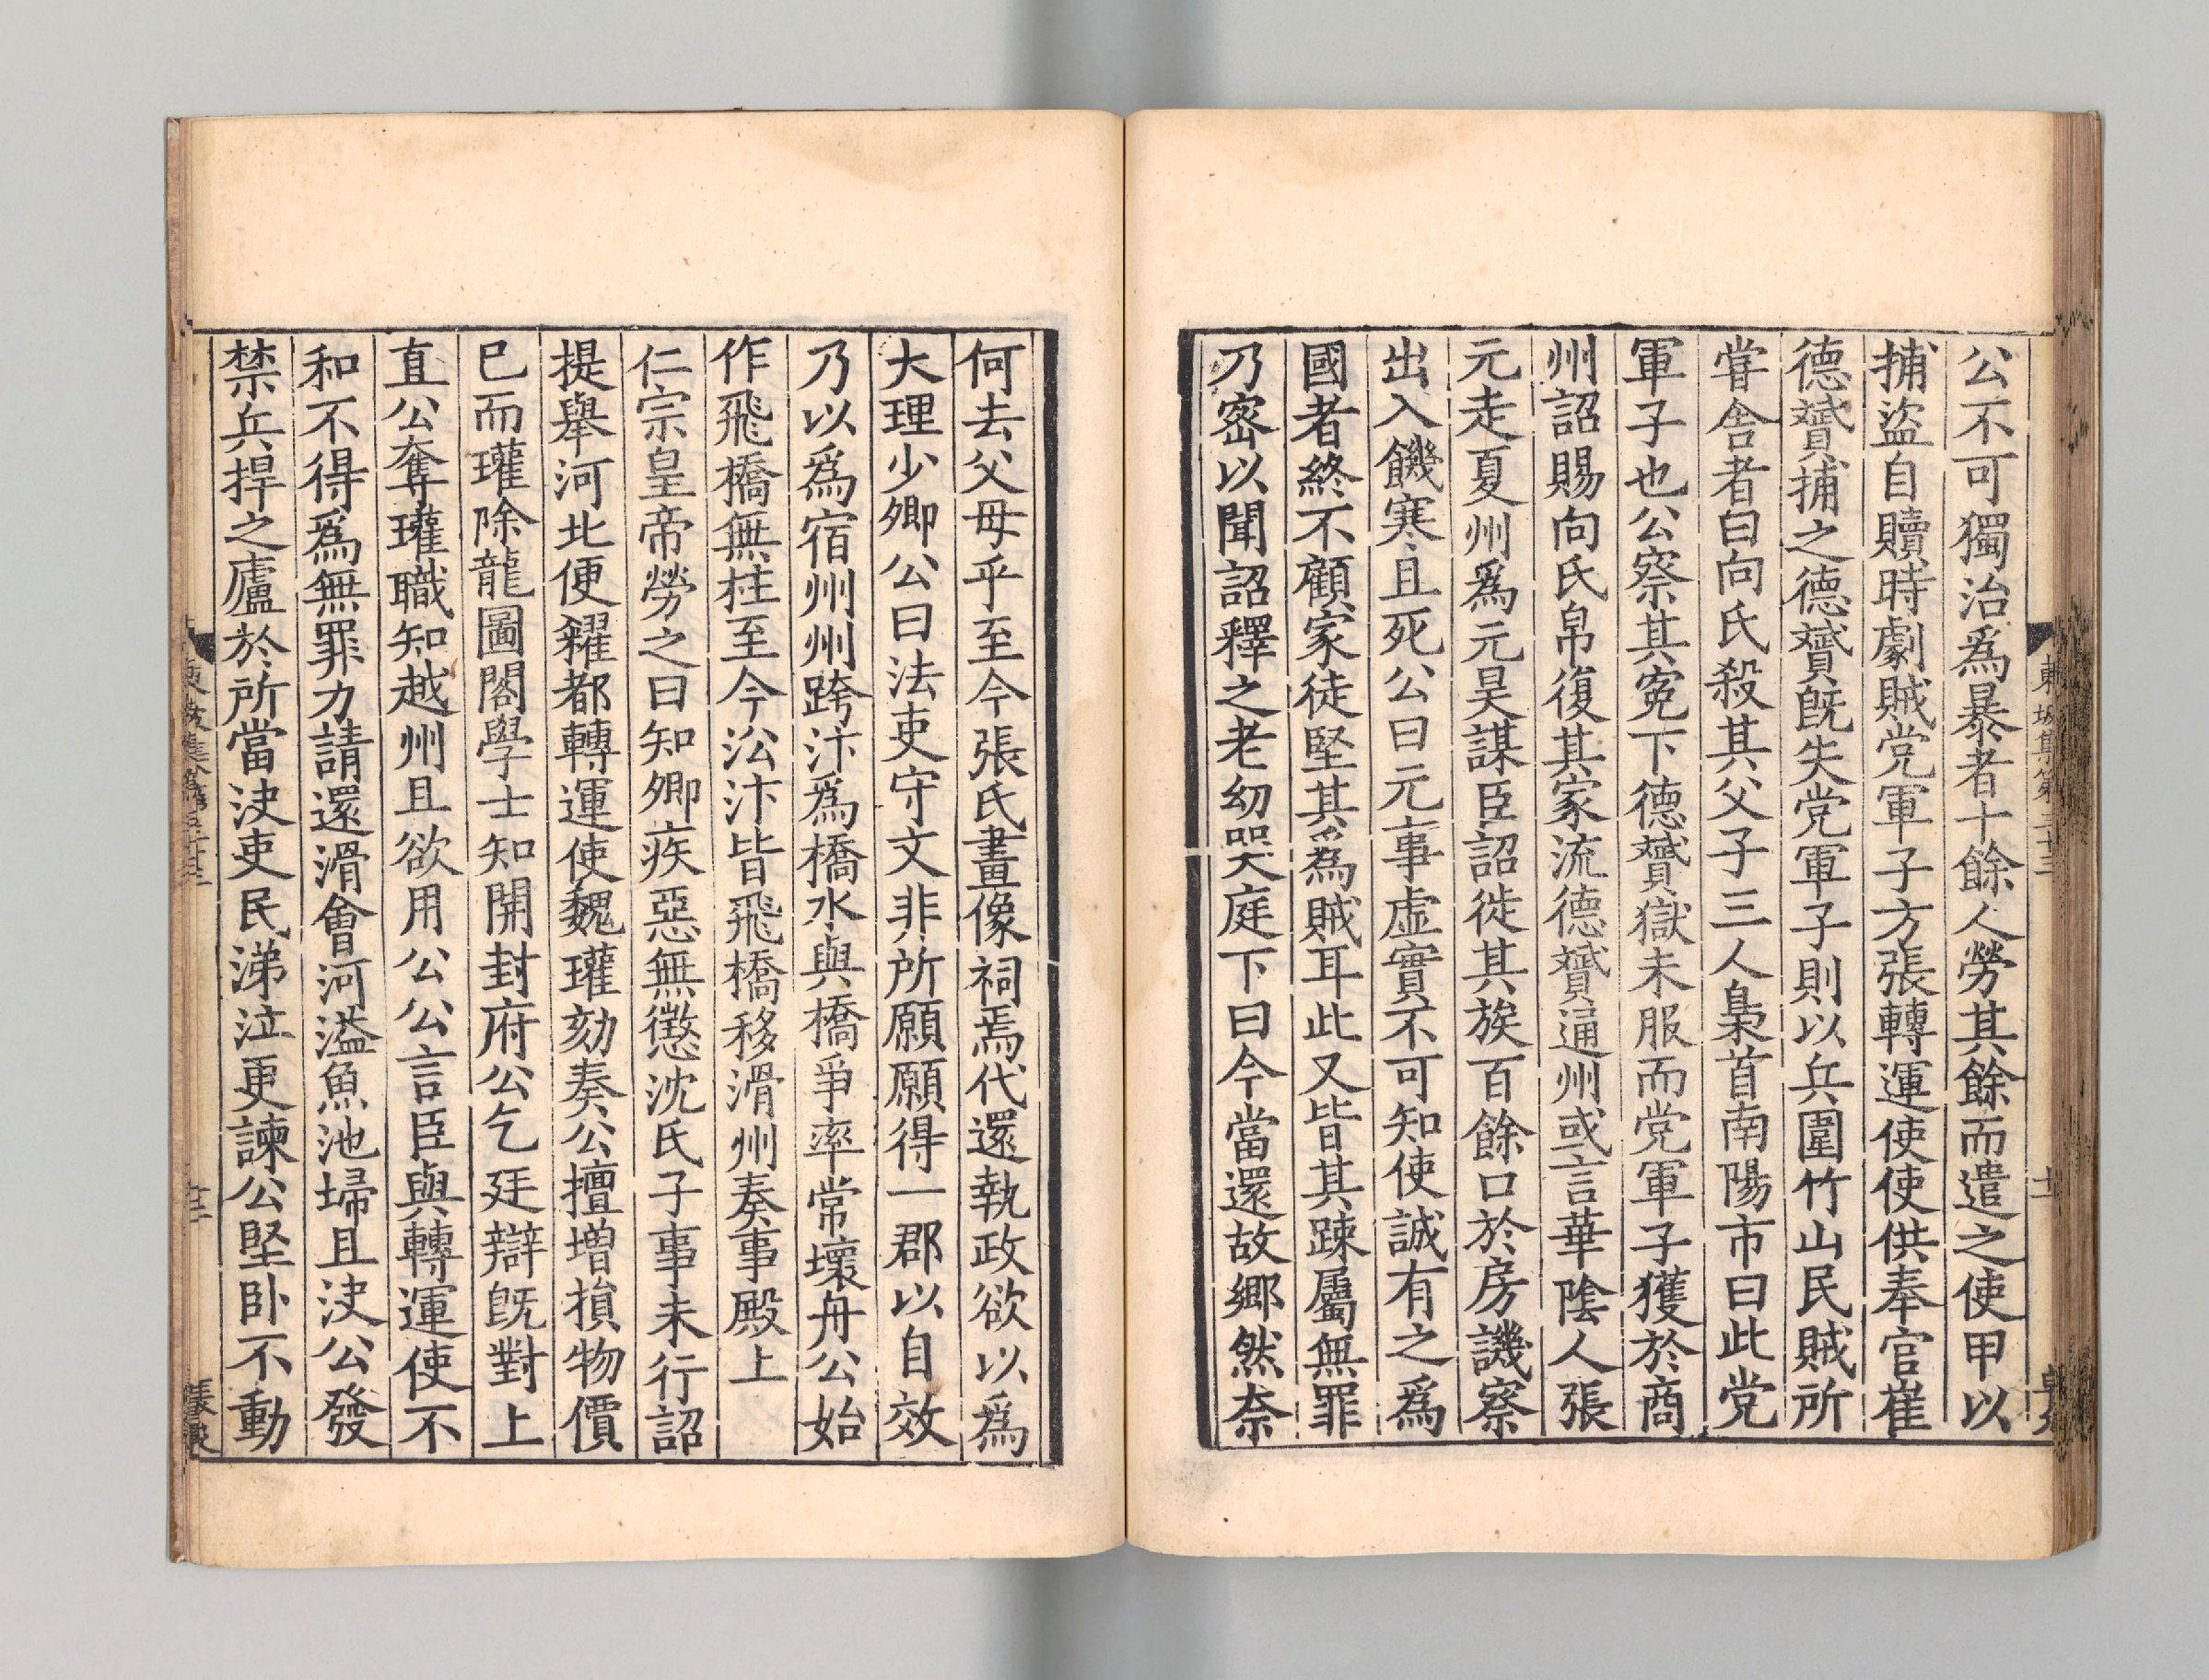 公不可獨治爲暴者十餘人勞其餘而遣之使甲以
捕盜自贖時劇賊党軍子方張轉運使使供奉官崔
德贇捕之德贇旣失党軍子則以兵圍竹山民賊所
甞舍者曰向氏殺其父子三人梟首南陽市曰此党
軍子也公察其冤下德贇獄未服而党軍子獲於商
州詔賜向氏帛復其家流德贇通州或言華陰人張
元走夏州爲元昊謀臣詔徙其族百餘口於房譏察
出入饑寒且死公曰元事虛實不可知使誠有之爲
國者終不顧家徒堅其爲賊耳此又皆其踈屬無罪
乃密以聞詔釋之老幼哭庭下曰今當還故鄉然柰
何去父母乎至今張氏畫像祠焉代還執政欲以爲
大理少卿公曰法吏守文非所願願得一郡以自效
乃以爲宿州州跨汴爲橋水與橋爭率常壞舟公始
作飛橋無柱至今㳂汴皆飛橋移滑州奏事殿上
仁宗皇帝勞之曰知卿疾惡無懲沈氏子事未行詔
提舉河北便糴都轉運使魏瓘劾奏公擅增損物價
已而瓘除龍圖閣學士知開封府公乞廷辯旣對上
直公奪瓘職知越州且欲用公公言臣與轉運使不
和不得爲無罪力請還滑會河溢魚池埽且決公發
禁兵捍之廬於所當決吏民涕泣更諫公堅卧不動
東坡集第三十三